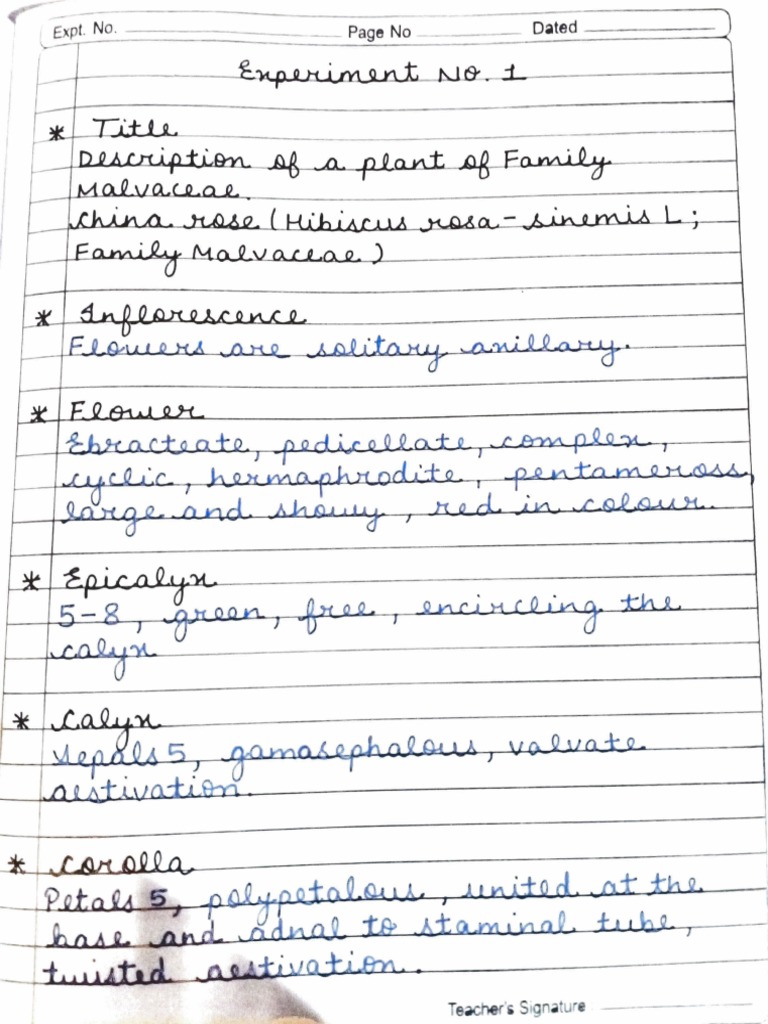 Expt. No.
Page No
Dated
Experiment No. 1
* Title
Description of a plant of Family
Malvaceae.
China rose (Hibiscus rosa-sinemis L;
Family Malvaceae)
* Inflorescence
Flowers are solitary anillary.
* Flower
Ebracteate, pedicellate, complex,
cyclic, hermaphrodite, pentameross,
large and showy, red in colour.
* Epicalyx
5-8, green, free, encircling the
calyx
* Calyx
Sepals 5, gamasephalous, valvate
aestivation.
* Corolla
Petals 5, polypetalous, united at the
base and adnal to staminal tube,
twisted aestivation.
Teacher's Signature